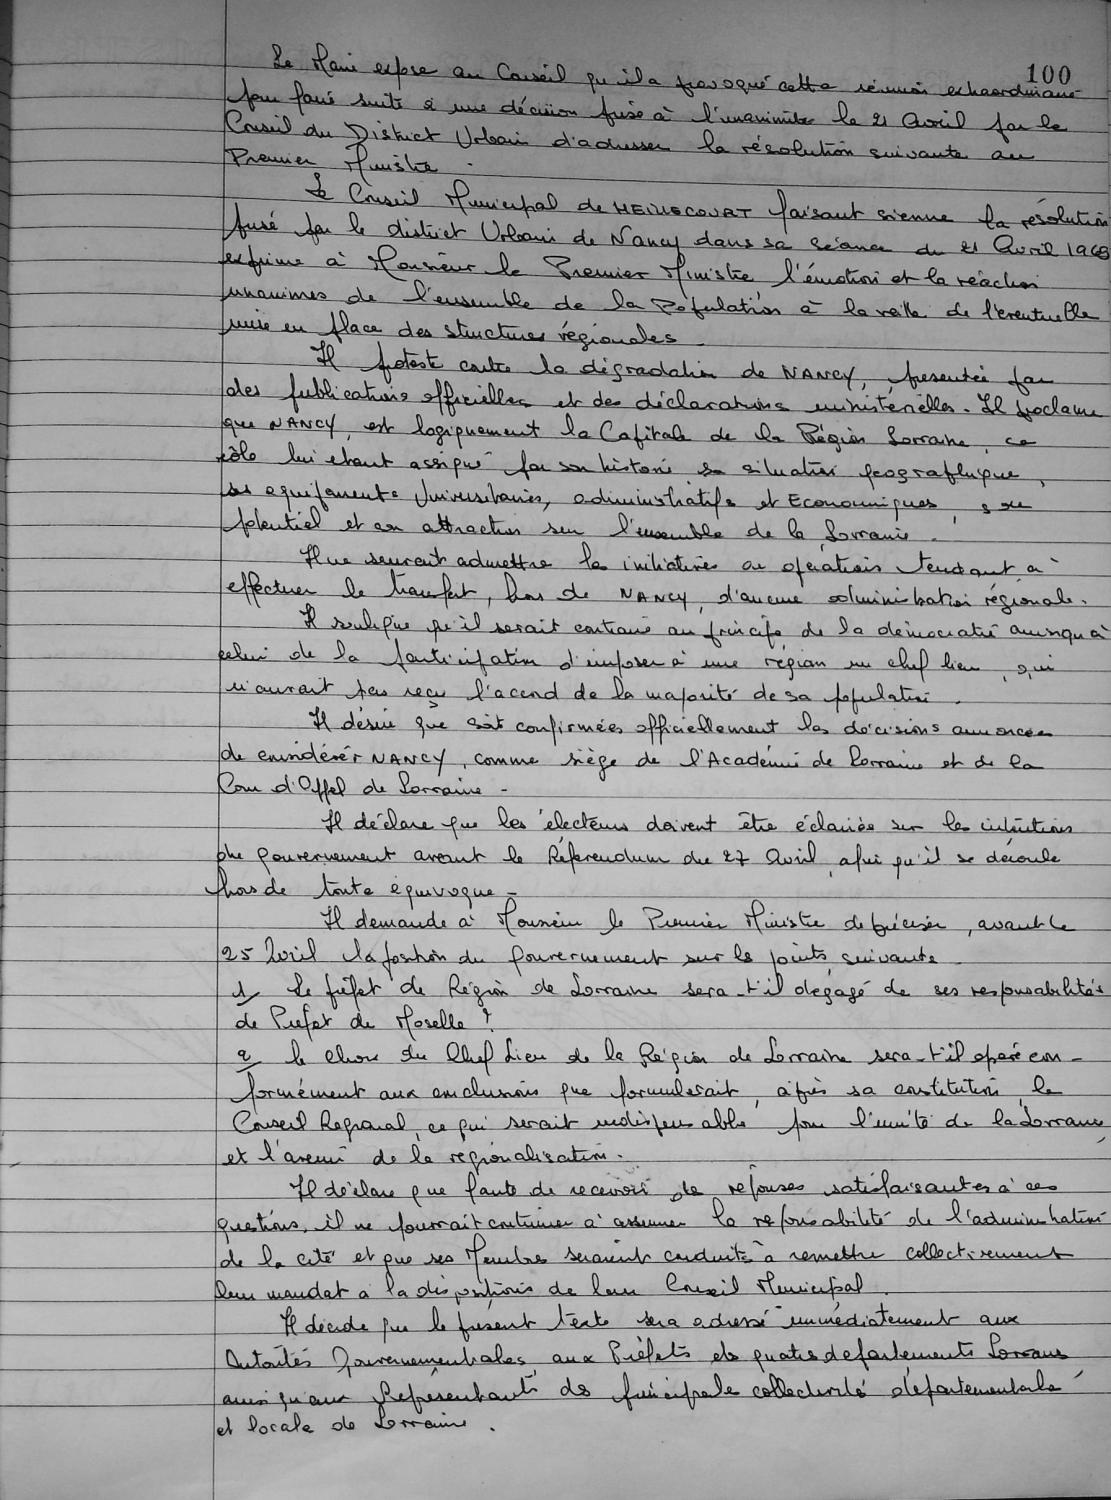 100
Le Maire expose au Conseil qu'il a provoqué cette réunion extraordinaire
pour faire suite à une décision prise à l'unanimité le 21 Avril par le
Conseil du District Urbain d'adresser la résolution suivante au
Premier Ministre.
Le Conseil Municipal de HEILLECOURT faisant sienne la résolution
prise par le district Urbain de Nancy dans sa séance du 21 Avril 1969
exprime à Monsieur le Premier Ministre, l'émotion et la réaction
unanimes de l'ensemble de la Population à la veille de l'éventuelle
mise en place des structures régionales.
Il proteste contre la dégradation de NANCY, présentée par
des publications officielles et des déclarations ministérielles. Il proclame
que NANCY, est logiquement la Capitale de la Région Lorraine, ce
rôle lui étant assigné par son histoire sa situation géographique,
ses equipements Universitaires, administratifs et Economiques, son
potentiel et son attraction sur l'ensemble de la Lorraine.
Il ne saurait admettre les initiatives ou opérations tendant à
effectuer le transfert, hors de NANCY, d'aucune administration régionale.
Il souligne qu'il serait contraire au principe de la démocratie ainsi qu'à
celui de la participation d'imposer à une région un chef lieu, qui
n'aurait pas reçu l'accord de la majorité de sa population.
Il désire que soit confirmées officiellement les décisions annoncées
de considérer NANCY, comme siège de l'Académie de Lorraine et de la
Cour d'Appel de Lorraine -
Il déclare que les électeurs doivent être éclairés sur les intentions
du gouvernement avant le Référendum du 27 Avril, afin qu'il se déroule
hors de toute équivoque -
Il demande à Monsieur le Premier Ministre de préciser, avant le
25 Avril la position du gouvernement sur les points suivants
1/ Le préfet de Région de Lorraine sera-t'il dégagé de ses responsabilités
de Prefet de Moselle ?
2/ le choix du Chef Lieu de la Région de Lorraine sera-t'il opéré con-
formément aux conclusions que formulerait, après sa constitution, le
Conseil Regional, ce qui serait indispensable pour l'unité de la Lorraine,
et l'avenir de la régionalisation.
Il déclare que faute de recevoir de réponses satisfaisantes à ces
questions, il ne pourrait continuer à assumer la responsabilité de l'administration
de la cité et que ses Membres seraient conduits à remettre collectivement
leur mandat à la disposition de leur Conseil Municipal.
Il décide que le présent texte sera adressé immédiatement aux
Autorités Gouvernementales, aux Préfets des quatre departements Lorrains
ainsi qu'aux Représentants des principale collectivité départementale
et locale de Lorraine.